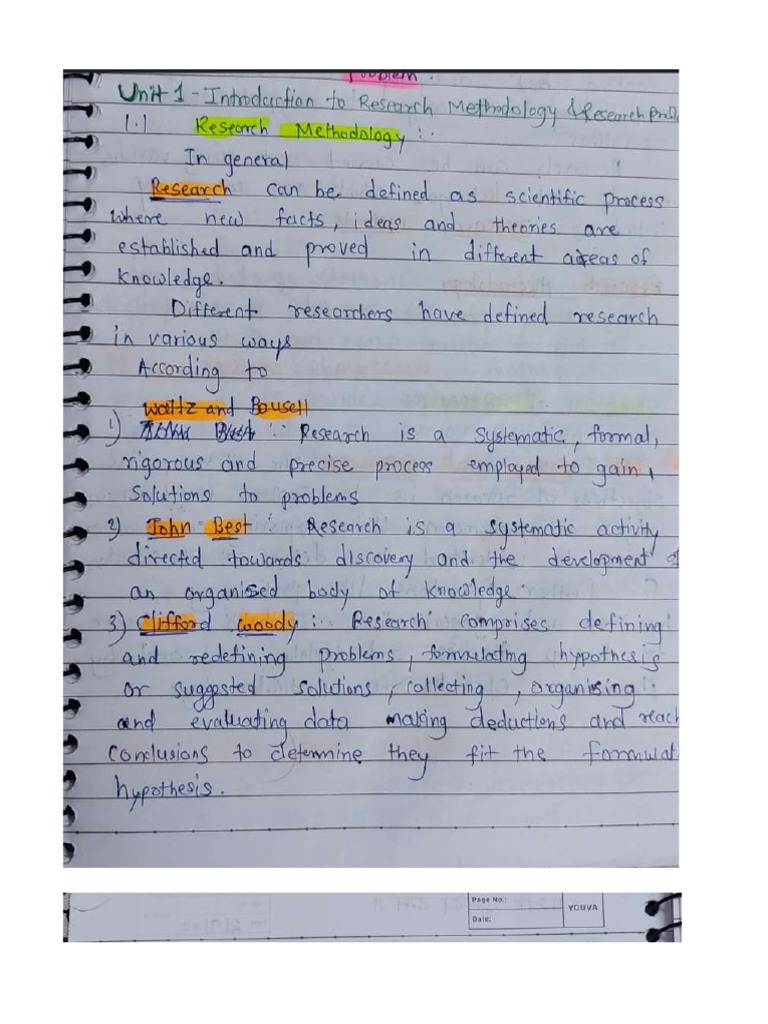 Problem.
Unit 1 - Introduction to Research Methodology & Research Prob
1.1 Research Methodology :-
In general
Research can be defined as scientific process
where new facts, ideas and theories are
established and proved in different areas of
knowledge.
Different researchers have defined research
in various ways
According to
Waltz and Bausell
1) :- Research is a systematic, formal,
rigorous and precise process employed to gain
solutions to problems
2) John Best : Research is a systematic activity
directed towards discovery and the development of
an organised body of knowledge.
3) Clifford Woody : Research comprises defining
and redefining problems, formulating hypothesis
or suggested solutions, collecting, organising
and evaluating data making deductions and reach
conclusions to determine they fit the formulat
hypothesis.
Page No.:
Date:
YOUVA